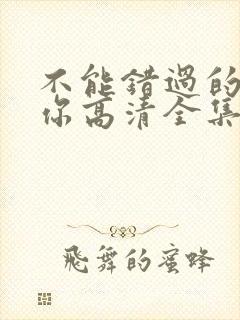 不能错过的
你高清全集
飛舞的蜜蜂